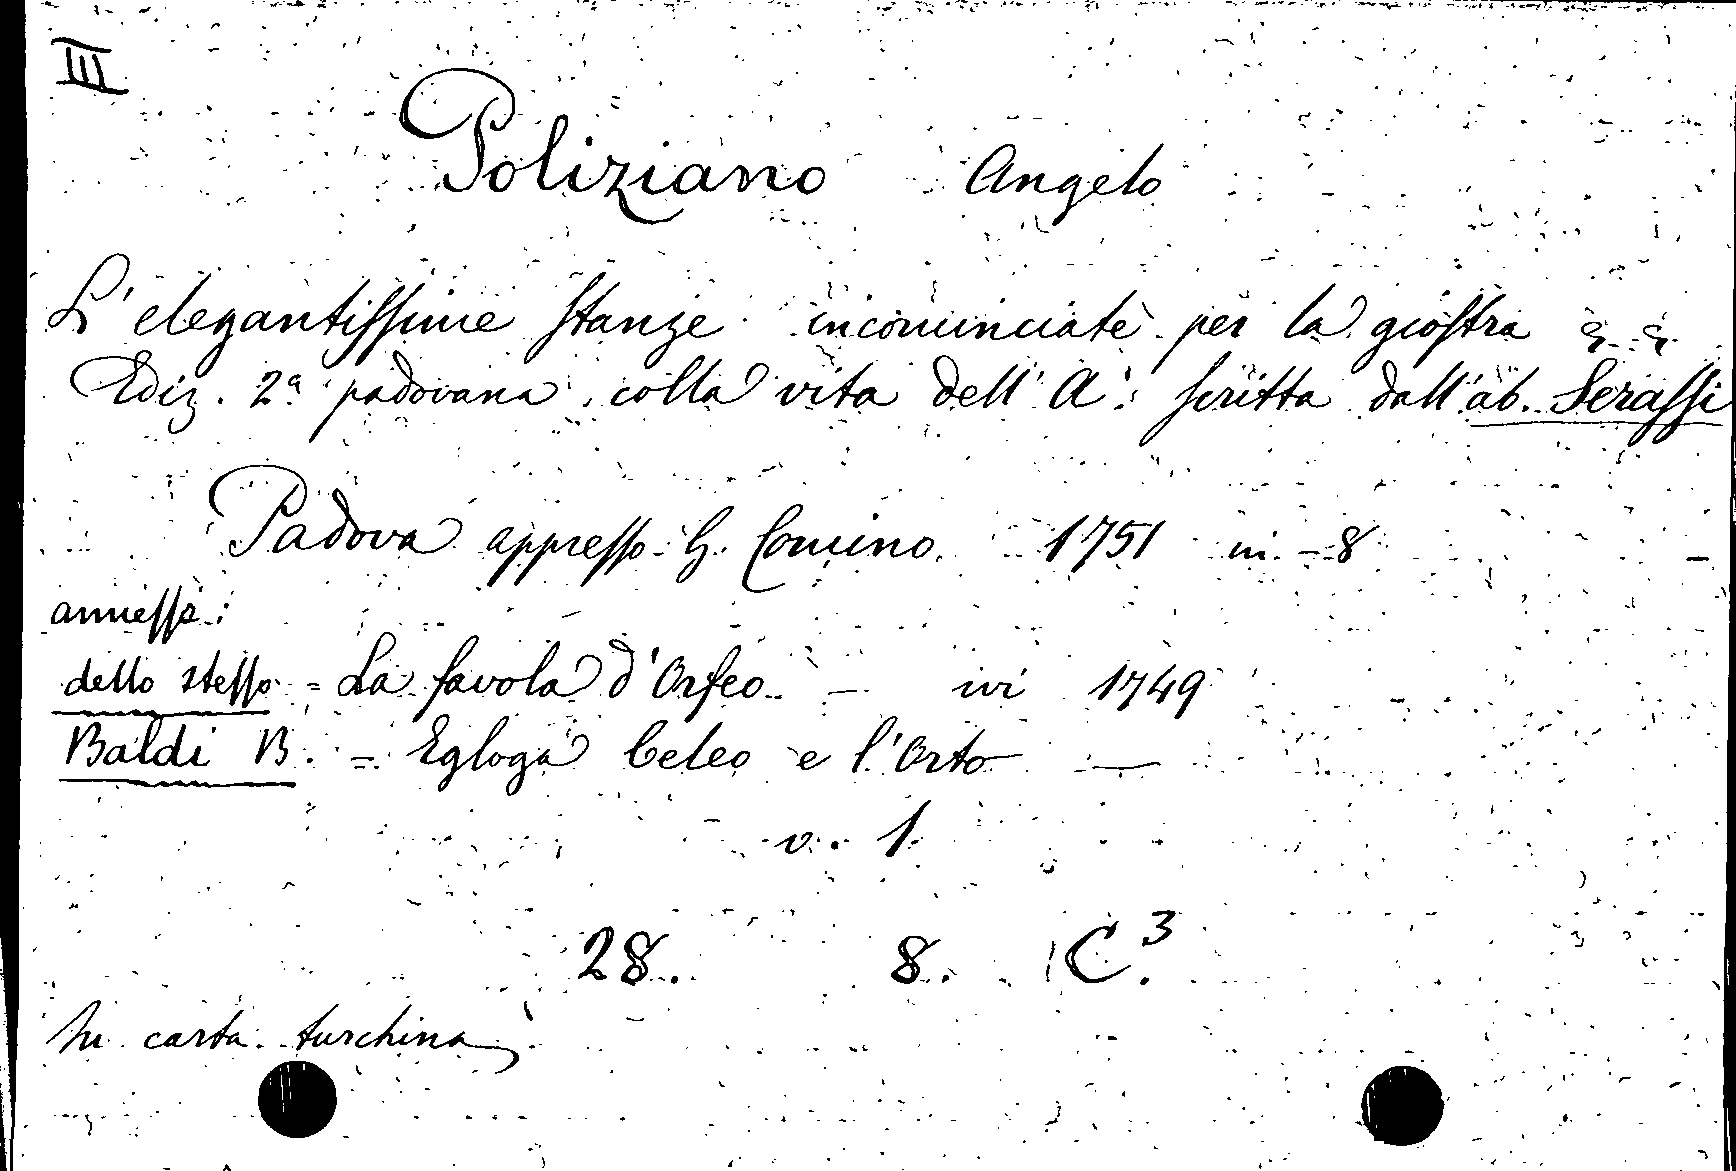 III
Poliziano Angelo
L'elegantissime stanze incominciate per la giostra &. &.
Ediz. 2ª padovana colla vita dell'A. scritta dall'ab. Serassi
Padova appresso G. Comino 1751 in-8
annesse:
dello stesso = La favola d'Orfeo - ivi 1749
Baldi B. = Egloga Celeo e l'Orto —
v. 1
28. 8. C.3
In carta turchina